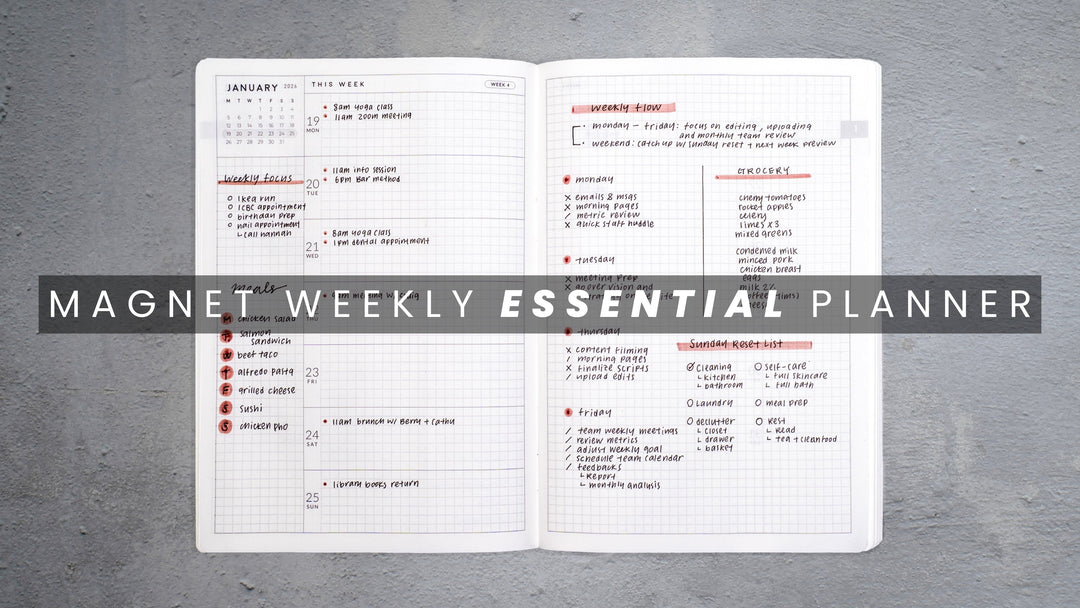 JANUARY 2026
M T W T F S S
1 2 3 4
5 6 7 8 9 10 11
12 13 14 15 16 17 18
19 20 21 22 23 24 25
26 27 28 29 30 31
weekly focus
Ikea run
ICBC appointment
birthday prep
nail appointment
call hannah
meals
M chicken salad
T salmon
sandwich
W beef taco
T alfredo pasta
F grilled cheese
S sushi
S chicken pho
THIS WEEK
WEEK 4
19
MON
8am yoga class
11am zoom meeting
20
TUE
11am info session
6pm Bar method
21
WED
8am yoga class
1pm dental appointment
meeting w/
THU
23
FRI
24
SAT
11am brunch w/ Berry + Cathy
25
SUN
library books return
weekly flow
monday – friday: focus on editing, uploading
and monthly team review
weekend: catch up w/ sunday reset + next week preview
monday
x emails & msgs
x morning pages
/ metric review
x quick staff huddle
tuesday
x meeting prep
x go over vision and
thursday
x content filming
/ morning pages
x finalize scripts
/ upload edits
friday
/ team weekly meetings
/ review metrics
/ adjust weekly goal
/ schedule team calendar
/ feedbacks
Report
monthly analysis
GROCERY
cherry tomatoes
rocket apples
celery
limes x3
mixed greens
condensed milk
minced pork
chicken breast
eggs
milk 2%
Sunday Reset List
cleaning
kitchen
bathroom
laundry
declutter
closet
drawer
basket
self-care
full skincare
full bath
meal prep
Rest
Read
tea + clean food
1
MAGNET WEEKLY ESSENTIAL PLANNER